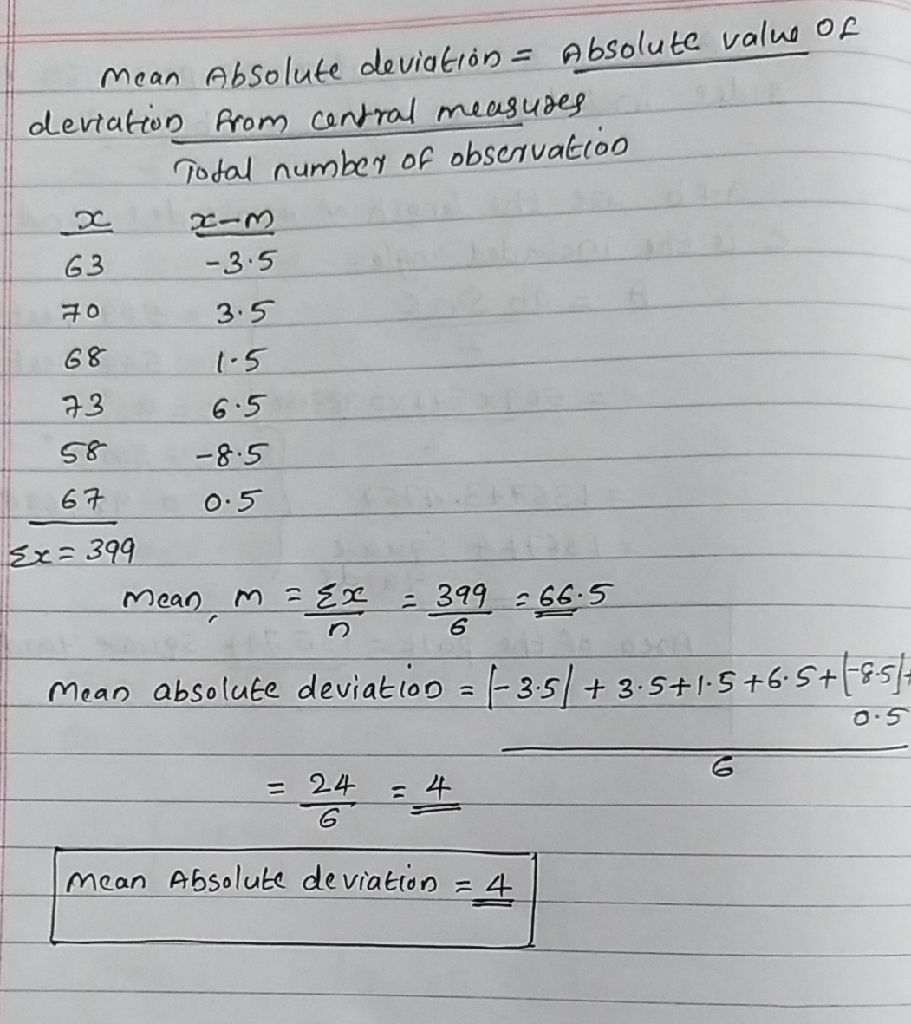 Mean Absolute deviation = Absolute value of
deviation from central measures
Total number of observation
x x-m
63 -3.5
70 3.5
68 1.5
73 6.5
58 -8.5
67 0.5
Σx = 399
Mean, m = Σx/n = 399/6 = 66.5
Mean absolute deviation = |-3.5| + 3.5+1.5+6.5+|-8.5|+
0.5
6
= 24/6 = 4
Mean Absolute deviation = 4